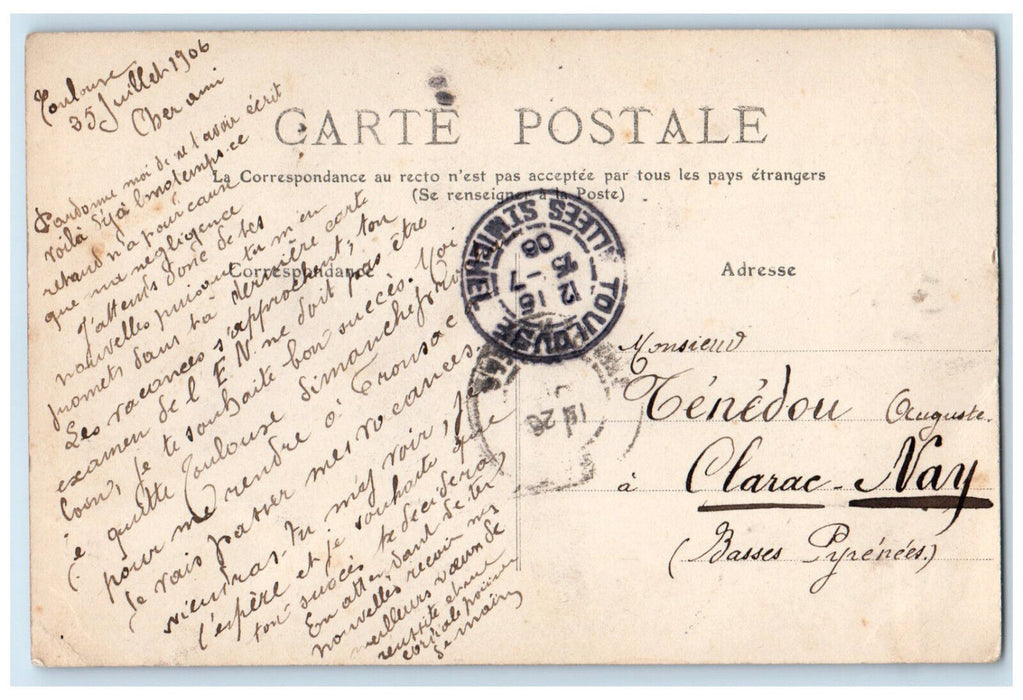 Toulouse
25 Juillet 1906
Cher ami
Pardonne moi de ne t'avoir écrit
voilà déjà longtemps. ce
retard n'a pour cause
que ma négligence
J'attends donc de tes
nouvelles puisque tu m'en
promets dans ta dernière carte
Les vacances s'approchent, ton
examen de l'E.N. ne doit pas être
loin, je te souhaite bon succès. Moi
je quitte Toulouse dimanche
pour me rendre à
Je vais passer mes vacances.
viendras-tu m'y voir, je
l'espère et je souhaite que
ton succès te décidera,
En attendant de te
nouvelles reçois mes
meilleurs vœux de
réussite et une
cordiale poignée
de main
CARTE POSTALE
La Correspondance au recto n'est pas acceptée par tous les pays étrangers
(Se renseigner à la Poste)
Correspondance
Adresse
TOULOUSE
ST MICHEL
16
7
06
26
Monsieur
Ténédou Auguste.
à Clarac-Nay
(Basses Pyrénées.)